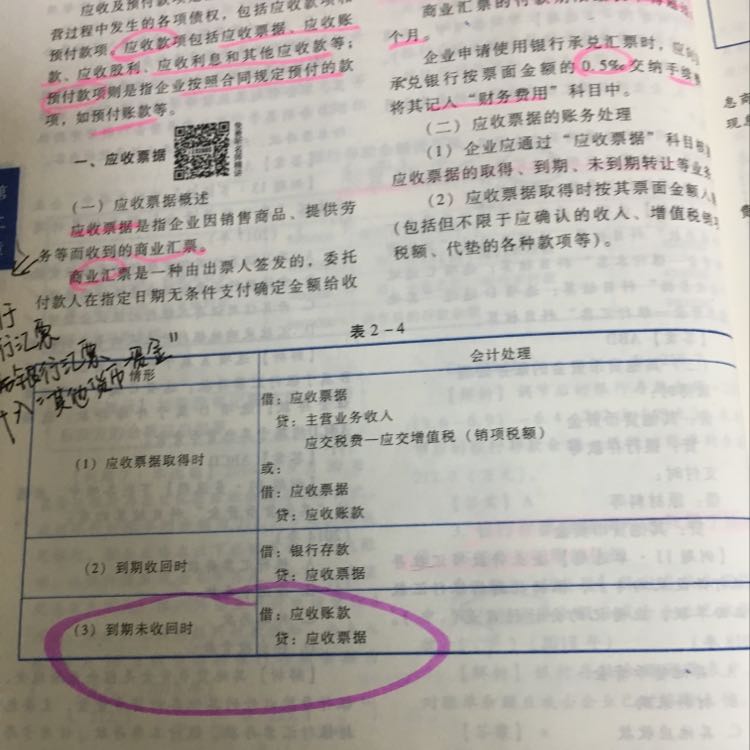 应收及预付款项是
营过程中发生的各项债权，包括应收款项和
预付款项。应收款项包括应收票据、应收账
款、应收股利、应收利息和其他应收款等；
预付款项则是指企业按照合同规定预付的款
项，如预付账款等。
一、应收票据
免费听名师精讲
（一）应收票据概述
应收票据是指企业因销售商品、提供劳
务等而收到的商业汇票。
商业汇票是一种由出票人签发的，委托
付款人在指定日期无条件支付确定金额给收
商业汇票的付款期
个月。
企业申请使用银行承兑汇票时，应向
承兑银行按票面金额的0.5‰交纳手续
将其记入“财务费用”科目中。
（二）应收票据的账务处理
（1）企业应通过“应收票据”科目
应收票据的取得、到期、未到期转让等业务
（2）应收票据取得时按其票面金额入
（包括但不限于应确认的收入、增值税销项
税额、代垫的各种款项等）。
第二章
行汇票
银行汇票
"其他货币资金"
表2-4
情形
会计处理
（1）应收票据取得时
借：应收票据
贷：主营业务收入
应交税费—应交增值税（销项税额）
或：
借：应收票据
贷：应收账款
（2）到期收回时
借：银行存款
贷：应收票据
（3）到期未收回时
借：应收账款
贷：应收票据